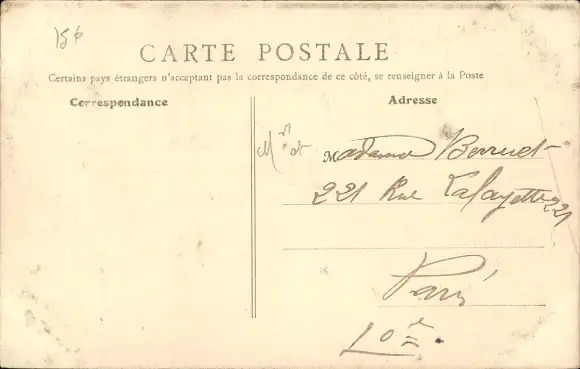 15f
CARTE POSTALE
Certains pays étrangers n'acceptant pas la correspondance de ce côté, se renseigner à la Poste
Correspondance
Adresse
Mr et Madame Berruet
221 Rue Lafayette 221
Paris
10e